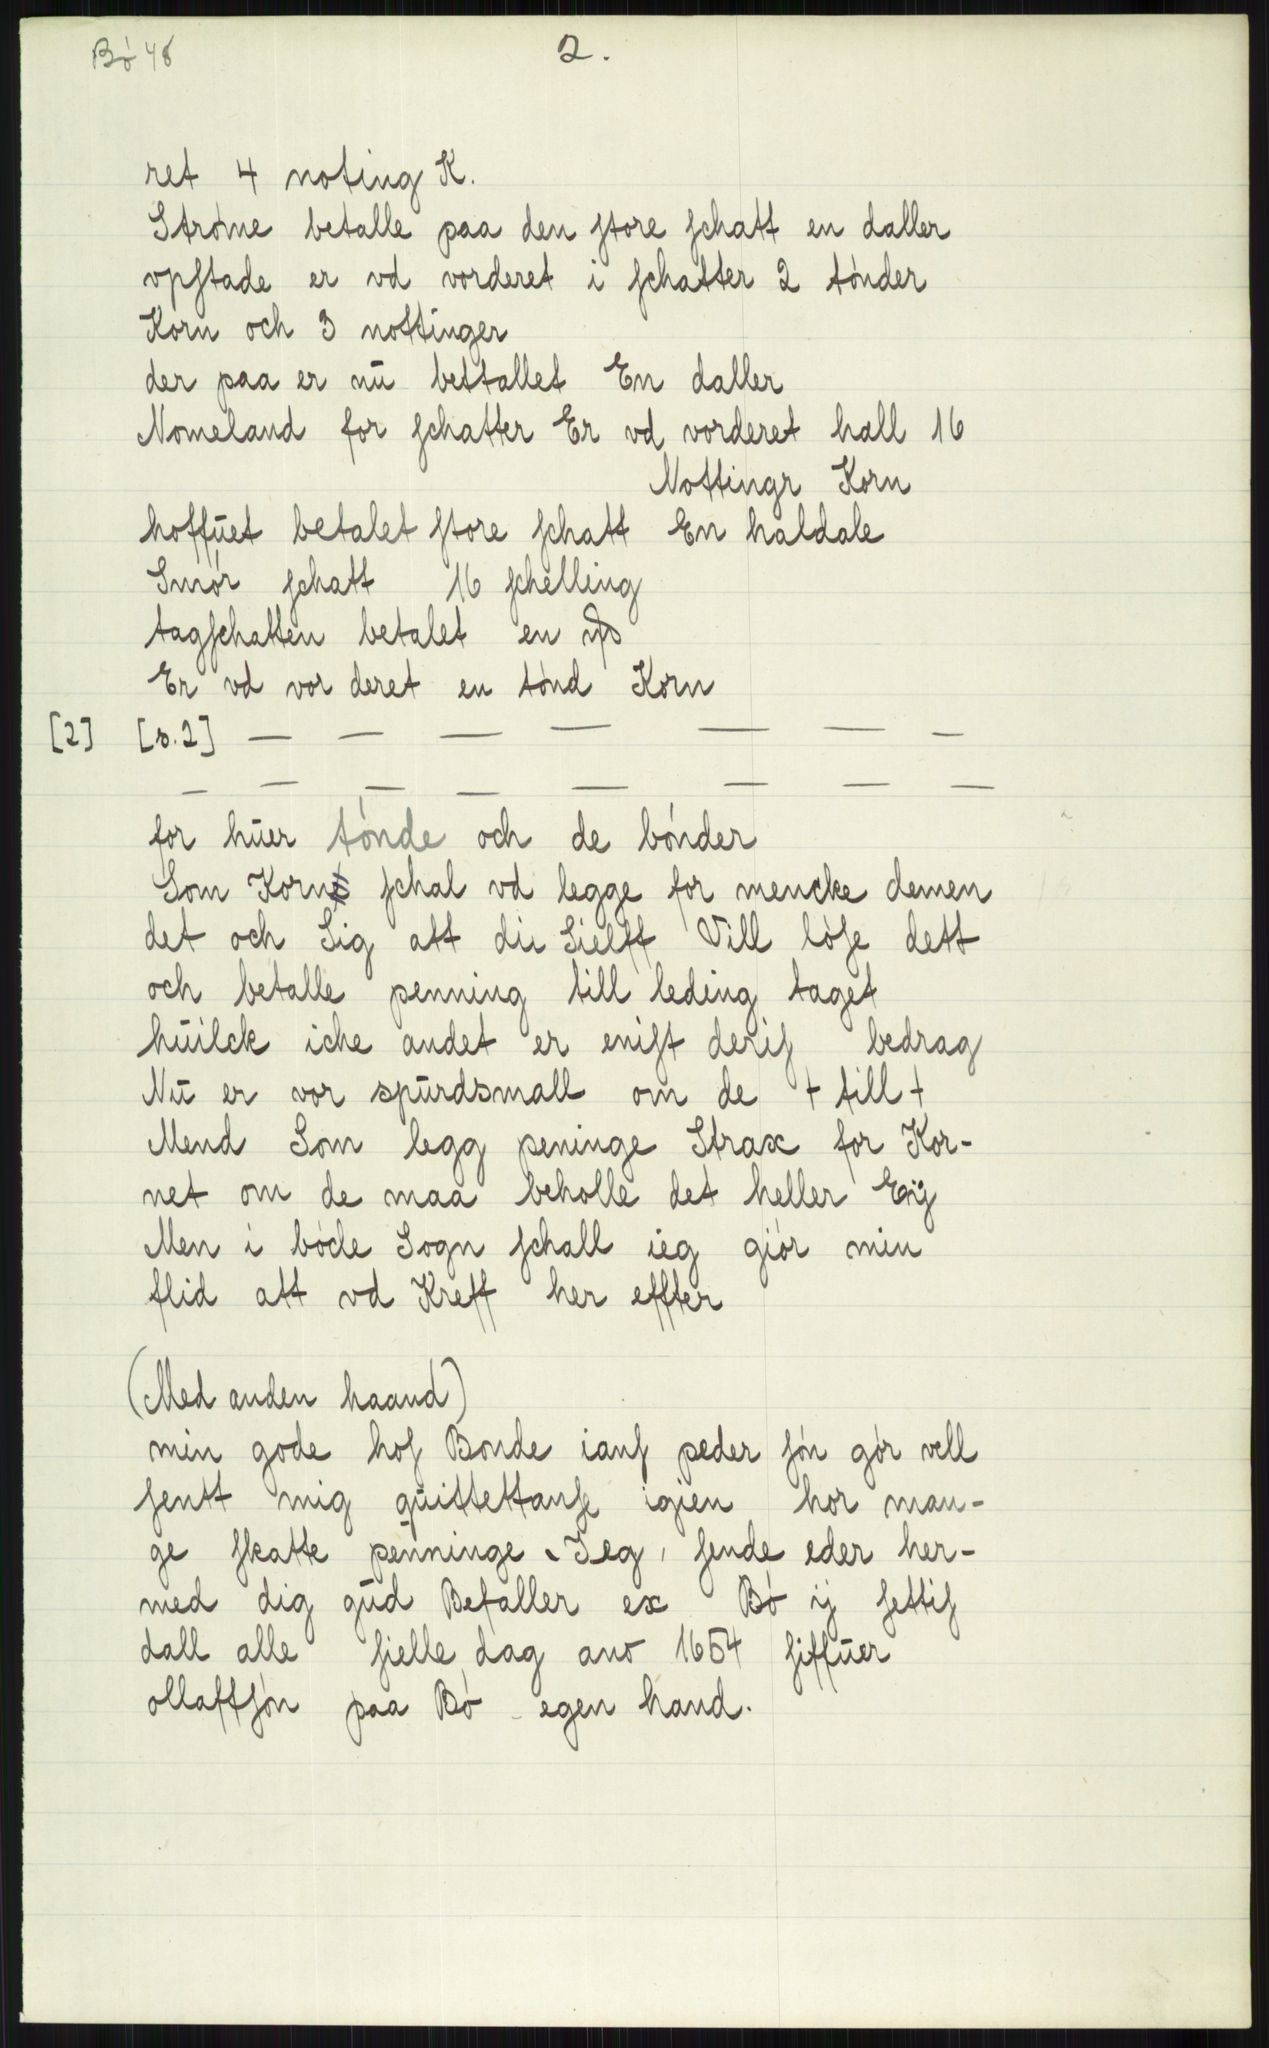 Bó 48
2.
ret 4 noting K.
Stróme betalle paa den store schatt en daller
vpstade er vd vorderet i schatter 2 tónder
Korn och 3 nottinger
der paa er nū bettallet En daller
Nomeland for schatter Er vd vorderet hall 16
Nottingr Korn
hoffūet betalet store schatt En haldale
Smór schatt 16 schelling
tagschatten betalet en
Er vd vor deret en tónd Korn
[2] [s.2] — — — — — — —
— — — — — — — —
for hūer tónde och de bónder
Som Korn schal vd legge for mencke demen
det och Sig att dii Sielff Vill lóse dett
och betalle penning till leding taget
hūilck iche andet er enist deris bedrag
Nū er vor spūrdsmall om de + till +
Mend Som legg peninge Strax for Kor-
net om de maa beholle det heller Eÿ
Men i bócle Sogn schall ieg giór min
flid att vd Kreff her effter
(Med anden haand)
min gode hos Bonde ians peder són gór vell
sentt mig qūittettanse igien hor man-
ge skatte penninge Jeg sende eder her-
med dig gūd Befaller ex Bó ij settis
dall alle sielle dag ano 1654 siffūer
ollaffsón paa Bó egen hand.